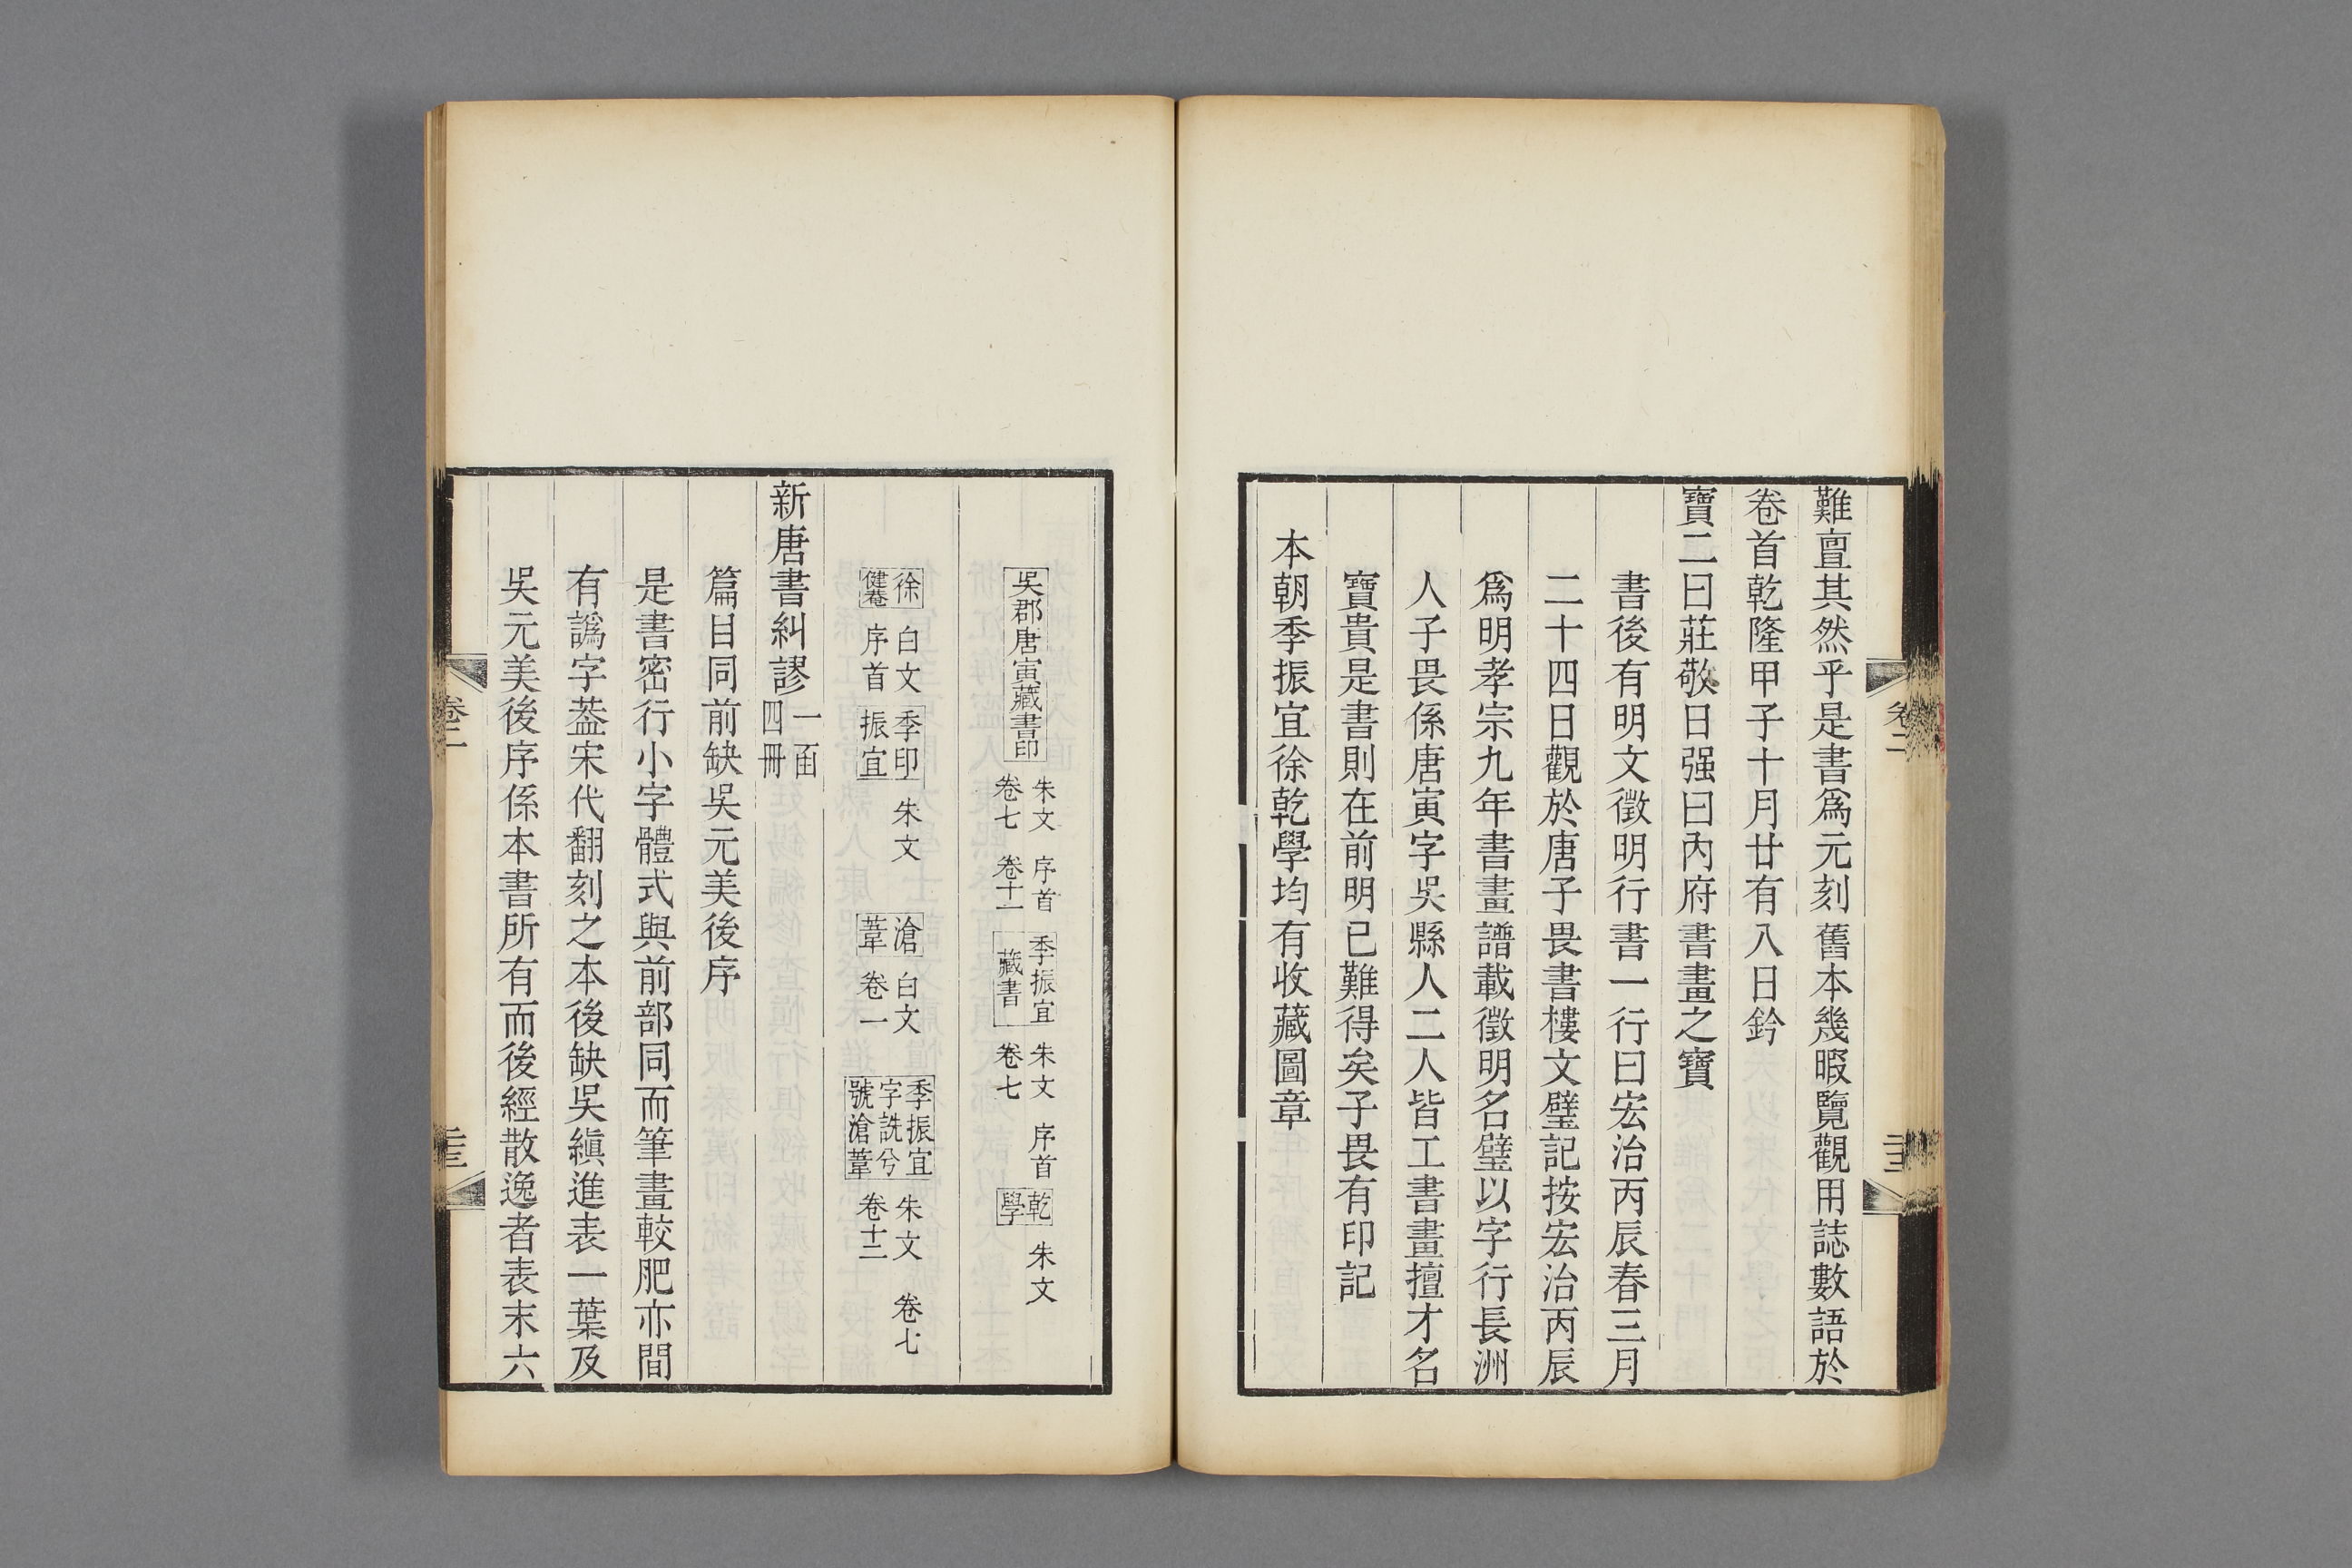 難亶其然乎是書爲元刻舊本幾暇覽觀用誌數語於
卷首乾隆甲子十月廿有八日鈐
寶二曰莊敬日强曰內府書畫之寶
書後有明文徵明行書一行曰宏治丙辰春三月
二十四日觀於唐子畏書樓文璧記按宏治丙辰
爲明孝宗九年書畫譜載徵明名璧以字行長洲
人子畏係唐寅字吳縣人二人皆工書畫擅才名
寶貴是書則在前明已難得矣子畏有印記
本朝季振宜徐乾學均有收藏圖章
卷二
吳郡唐寅藏書印
朱文 序首
卷七 卷十一
季振宜
藏書
朱文 序首
卷七
乾
學
朱文
徐
健菴
白文
序首
季印
振宜
朱文
滄
葦
白文
卷一
季振宜
字詵兮
號滄葦
朱文 卷七
卷十二
新唐書糾謬
一函
四冊
篇目同前缺吳元美後序
是書密行小字體式與前部同而筆畫較肥亦間
有譌字葢宋代翻刻之本後缺吳縝進表一葉及
吳元美後序係本書所有而後經散逸者表末六
卷二